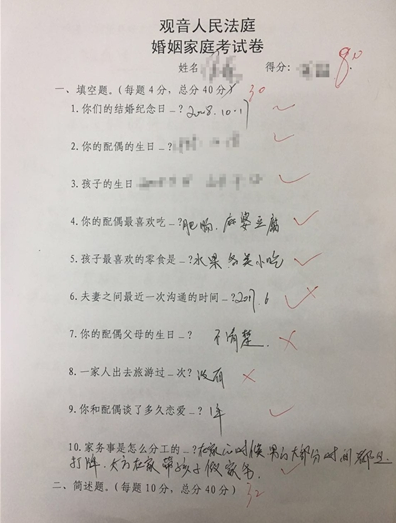 观音人民法庭
婚姻家庭考试卷
姓名 得分: 80
一、填空题。(每题4分,总分40分) 30
1.你们的结婚纪念日_?2008.10.17
2.你的配偶的生日_?
3.孩子的生日
4.你的配偶最喜欢吃_?肥肠、麻婆豆腐
5.孩子最喜欢的零食是_?水果 各类小吃
6.夫妻之间最近一次沟通的时间_?2017.6
7.你的配偶父母的生日_? 不清楚.
8.一家人出去旅游过_次?没有
9.你和配偶谈了多久恋爱_? 1年
10.家务事是怎么分工的_?在家的时候 男的大部分时间都是
打牌、女方在家带孩子做家务.
二、简述题。(每题10分,总分40分) 32